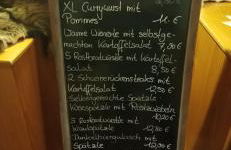 XL Currywurst mit
Pommes 11.- €
Warme Wienerle mit selbstge-
machten Kartoffelsalat 7,00 €
5 Rostbratwürstle mit Kartoffel-
salat 8,50 €
2 Schweinerückensteaks mit
Kartoffelsalat 12,50
Selbstgemachte Spätzle
Käsespätzle mit Röstzwiebeln
10,20 €
5 Rostbratwürstle mit
Krautspätzle 12,80 €
Dunkelbiergulasch mit
Spätzle